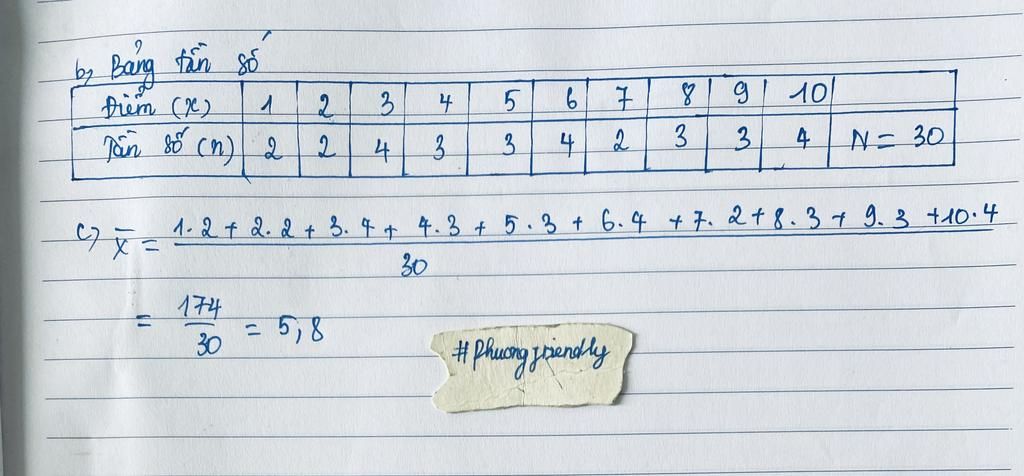 b, Bảng tần số
Điểm (x) 1 2 3 4 5 6 7 8 9 10
Tần số (n) 2 2 4 3 3 4 2 3 3 4 N = 30
c, x̄ = 1.2 + 2.2 + 3.4 + 4.3 + 5.3 + 6.4 + 7.2 + 8.3 + 9.3 + 10.4
30
= 174/30 = 5,8
#Phuongfriendly